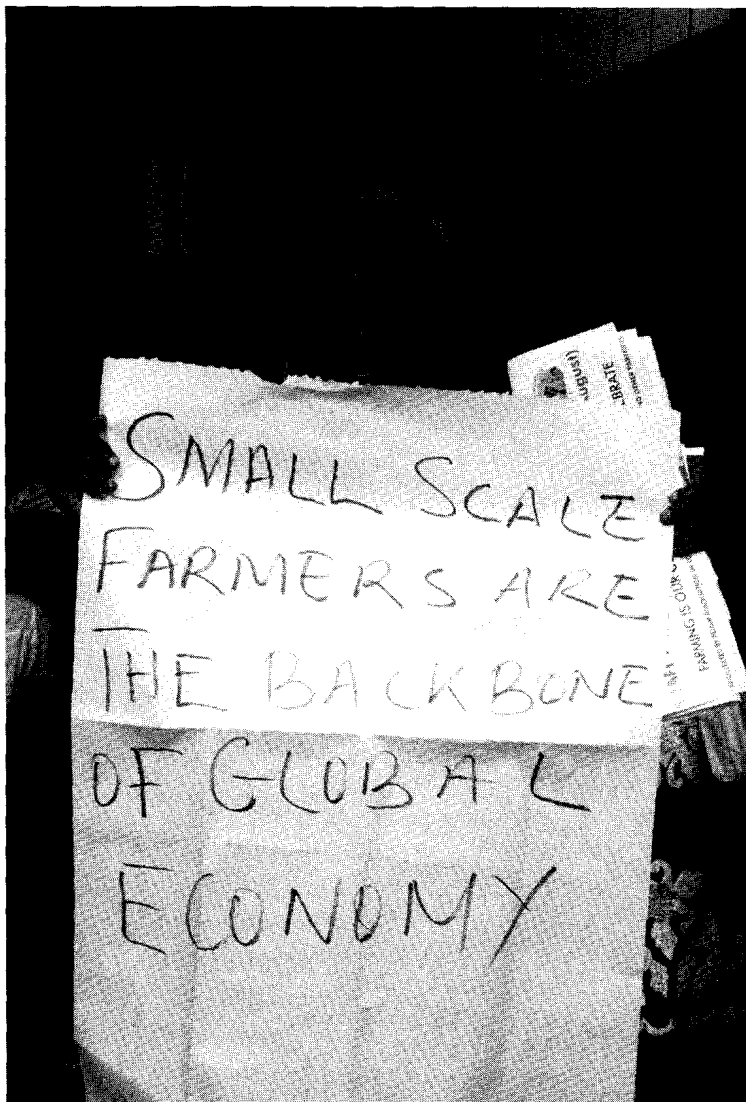 SMALL SCALE
FARMERS ARE
THE BACKBONE
OF GLOBAL
ECONOMY
August)
FARMING IS OUR